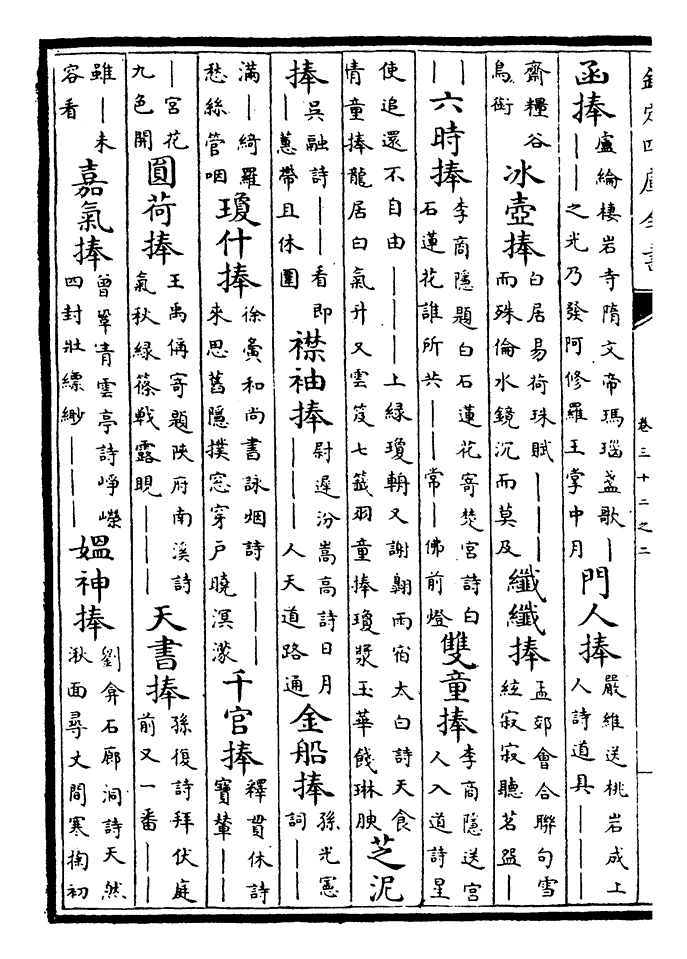 欽定四庫全書 卷三十二之二
函捧 盧綸棲岩寺隋文帝瑪瑙盞歌｜｜｜之光乃發阿修羅王掌中月 門人捧 嚴維送桃岩成上人詩道具｜｜｜
齋糧谷鳥銜 冰壺捧 白居易荷珠賦｜｜｜｜而殊倫水鏡沉而莫及 纖纖捧 孟郊會合聯句雪絃寂寂聽茗盌｜
｜｜ 六時捧 李商隱題白石蓮花寄楚宮詩白石蓮花誰所共｜｜常｜佛前燈 雙童捧 李商隱送宮人入道詩星
使追還不自由｜｜｜｜上綠瓊輈又謝翱雨宿太白詩天食青童捧龍居曰氣升又雲笈七籤羽童捧瓊漿玉華餞琳腴 芝泥
捧 吳融詩｜｜看即｜蕙帶且休圍 襟袖捧 尉遲汾嵩高詩日月｜｜｜人天道路通 金船捧 孫光憲詞｜｜
滿｜綺羅愁絲管咽 瓊什捧 徐夤和尚書詠烟詩｜｜｜來思舊隱撲窓穿戶曉溟濛 千官捧 釋貫休詩寶輦｜｜
｜宮花九色開 圓荷捧 王禹偁寄題陝府南溪詩氣秋綠篠戰露晛｜｜｜ 天書捧 孫復詩拜伏庭前又一番｜｜
雖｜未容看 嘉氣捧 曾鞏青雲亭詩崢嶸四封壯縹緲｜｜｜ 媼神捧 劉弇石廊洞詩天然湫面尋丈間寒掬初